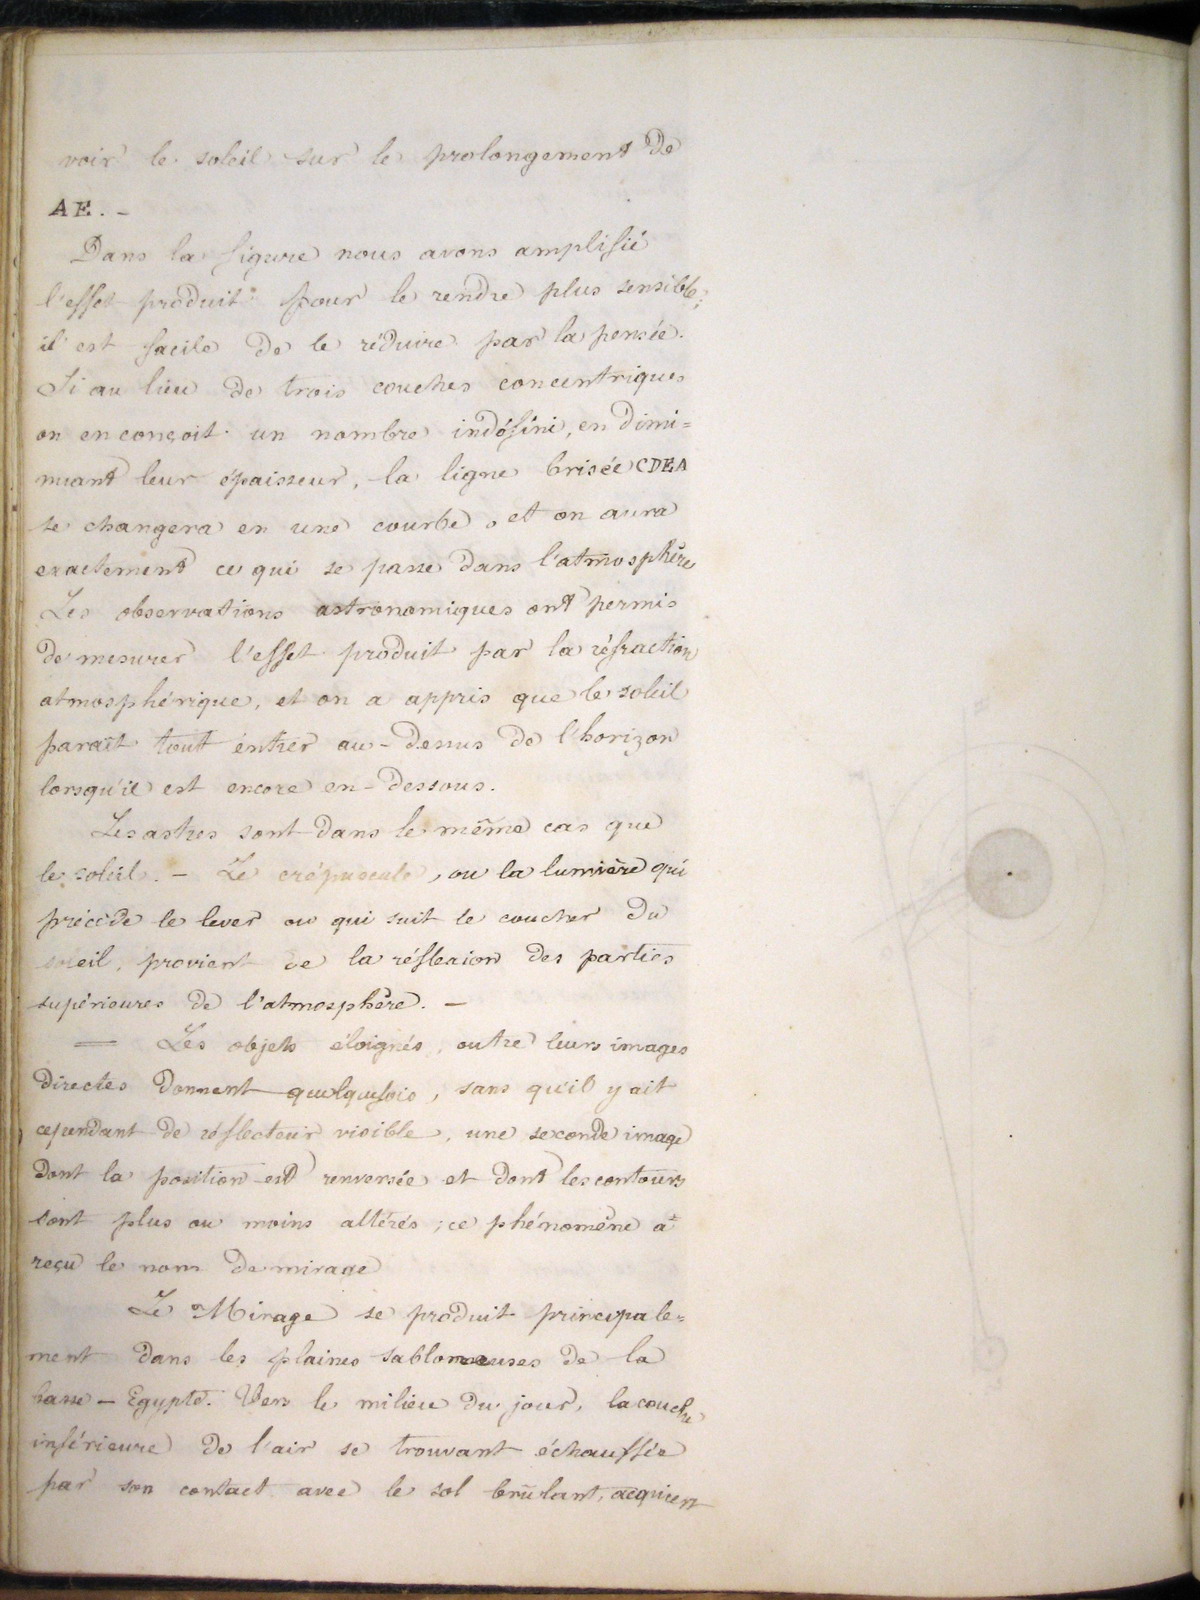 voir le soleil sur le prolongement de
AE. -
Dans la figure nous avons amplifié
l'effet produit pour le rendre plus sensible;
il est facile de le réduire par la pensée.
Si au lieu de trois couches concentriques
on en conçoit un nombre indéfini, en dimi=
nuant leur épaisseur, la ligne brisée CDEA
se changera en une courbe, et on aura
exactement ce qui se passe dans l'atmosphère
Les observations astronomiques ont permis
de mesurer l'effet produit par la réfraction
atmosphérique, et on a appris que le soleil
paraît tout entier au-dessus de l'horizon
lorsqu'il est encore en-dessous.
Les astres sont dans le même cas que
le soleil. - Le crépuscule, ou la lumière qui
précède le lever ou qui suit le coucher du
soleil, provient de la réflexion des parties
supérieures de l'atmosphère. -
— Les objets éloignés, outre leurs images
directes donnent quelquefois, sans qu'il y ait
cependant de réflecteur visible, une seconde image
dont la position est renversée et dont les contours
sont plus ou moins altérés; ce phénomène a
reçu le nom de mirage
Le Mirage se produit principale=
ment dans les plaines sablonneuses de la
basse - Egypte. Vers le milieu du jour, la couche
inférieure de l'air se trouvant échauffée
par son contact avec le sol brûlant, acquiert